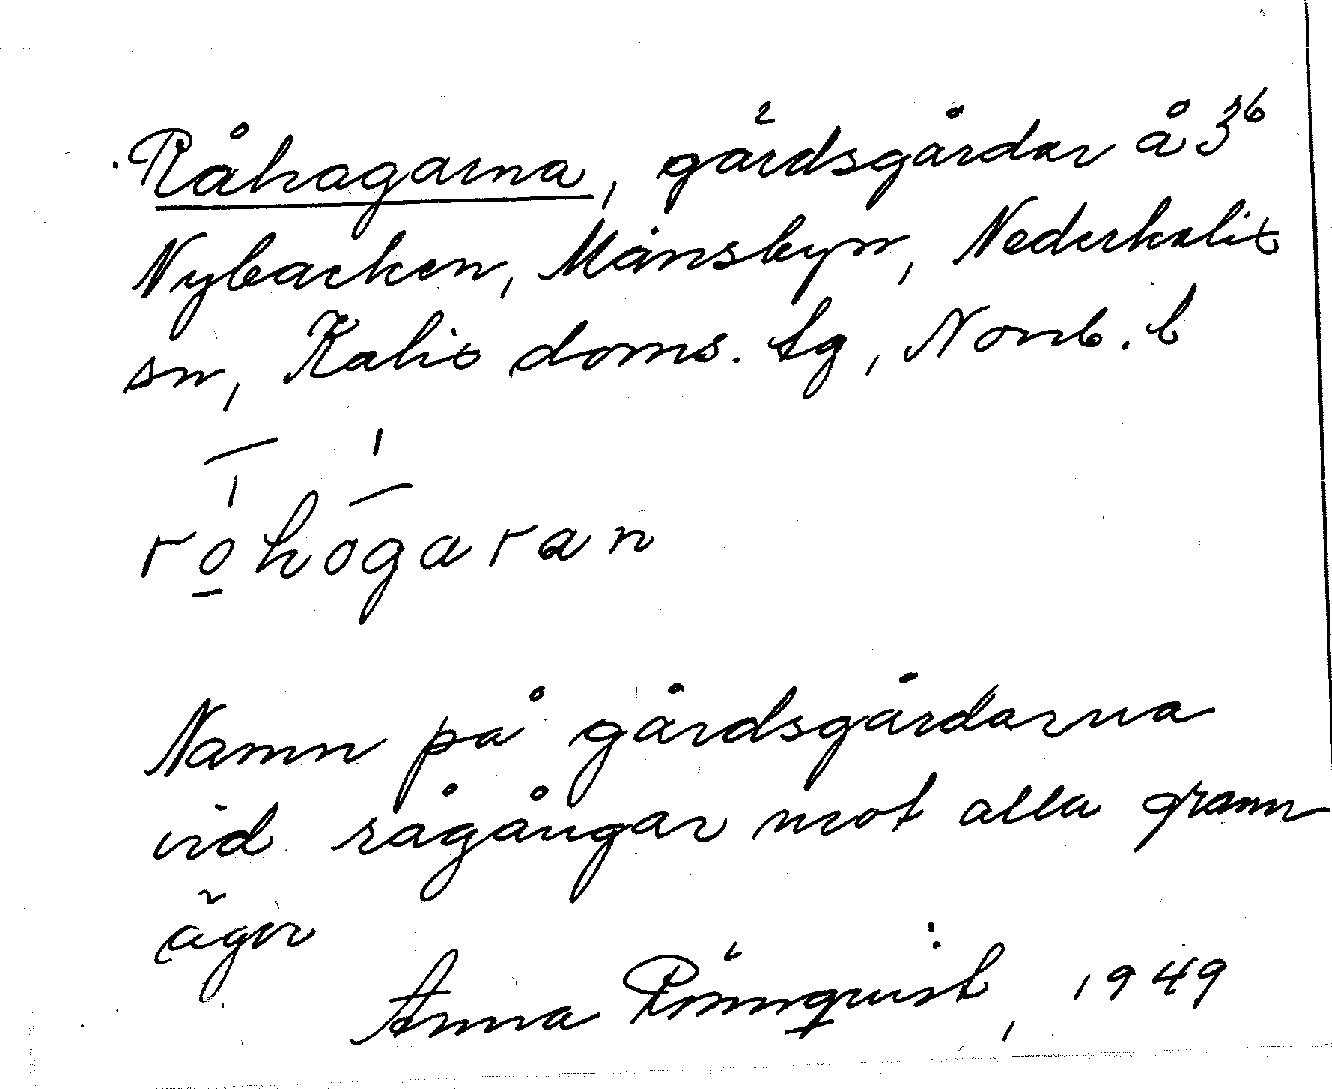 Råhagarna, gärdsgårdar å 3⁶
Nybacken, Månsbyn, Nederkalix
sn, Kalix doms. tg, Norrb. l
rohogaran
Namn på gärdsgårdarna
vid rågångar mot alla grann
ägor
Anna Rönnquist, 1949